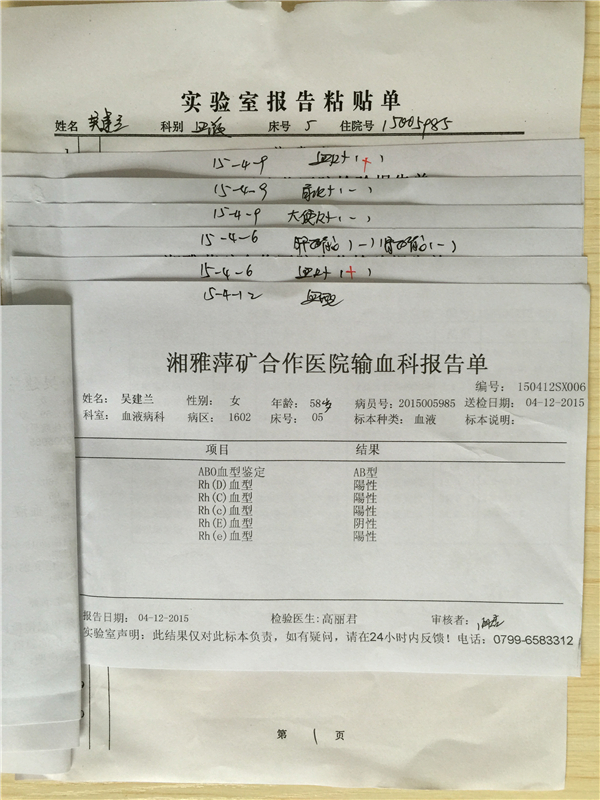 实验室报告粘贴单
姓名 吴建兰 科别 血液 床号 5 住院号 15005985
15-4-9 血RT(+)
15-4-9 尿RT(-)
15-4-9 大便RT(-)
15-4-6 肝功能(-)肾功能(-)
15-4-6 血RT(+)
15-4-12 血型
湘雅萍矿合作医院输血科报告单
编号: 150412SX006
姓名: 吴建兰 性别: 女 年龄: 58岁 病员号: 2015005985 送检日期: 04-12-2015
科室: 血液病科 病区: 1602 床号: 05 标本种类: 血液 标本说明:
项目 结果
ABO血型鉴定 AB型
Rh(D)血型 陽性
Rh(C)血型 陽性
Rh(c)血型 陽性
Rh(E)血型 阴性
Rh(e)血型 陽性
报告日期: 04-12-2015 检验医生: 高丽君 审核者:
实验室声明: 此结果仅对此标本负责, 如有疑问, 请在24小时内反馈! 电话: 0799-6583312
第 1 页